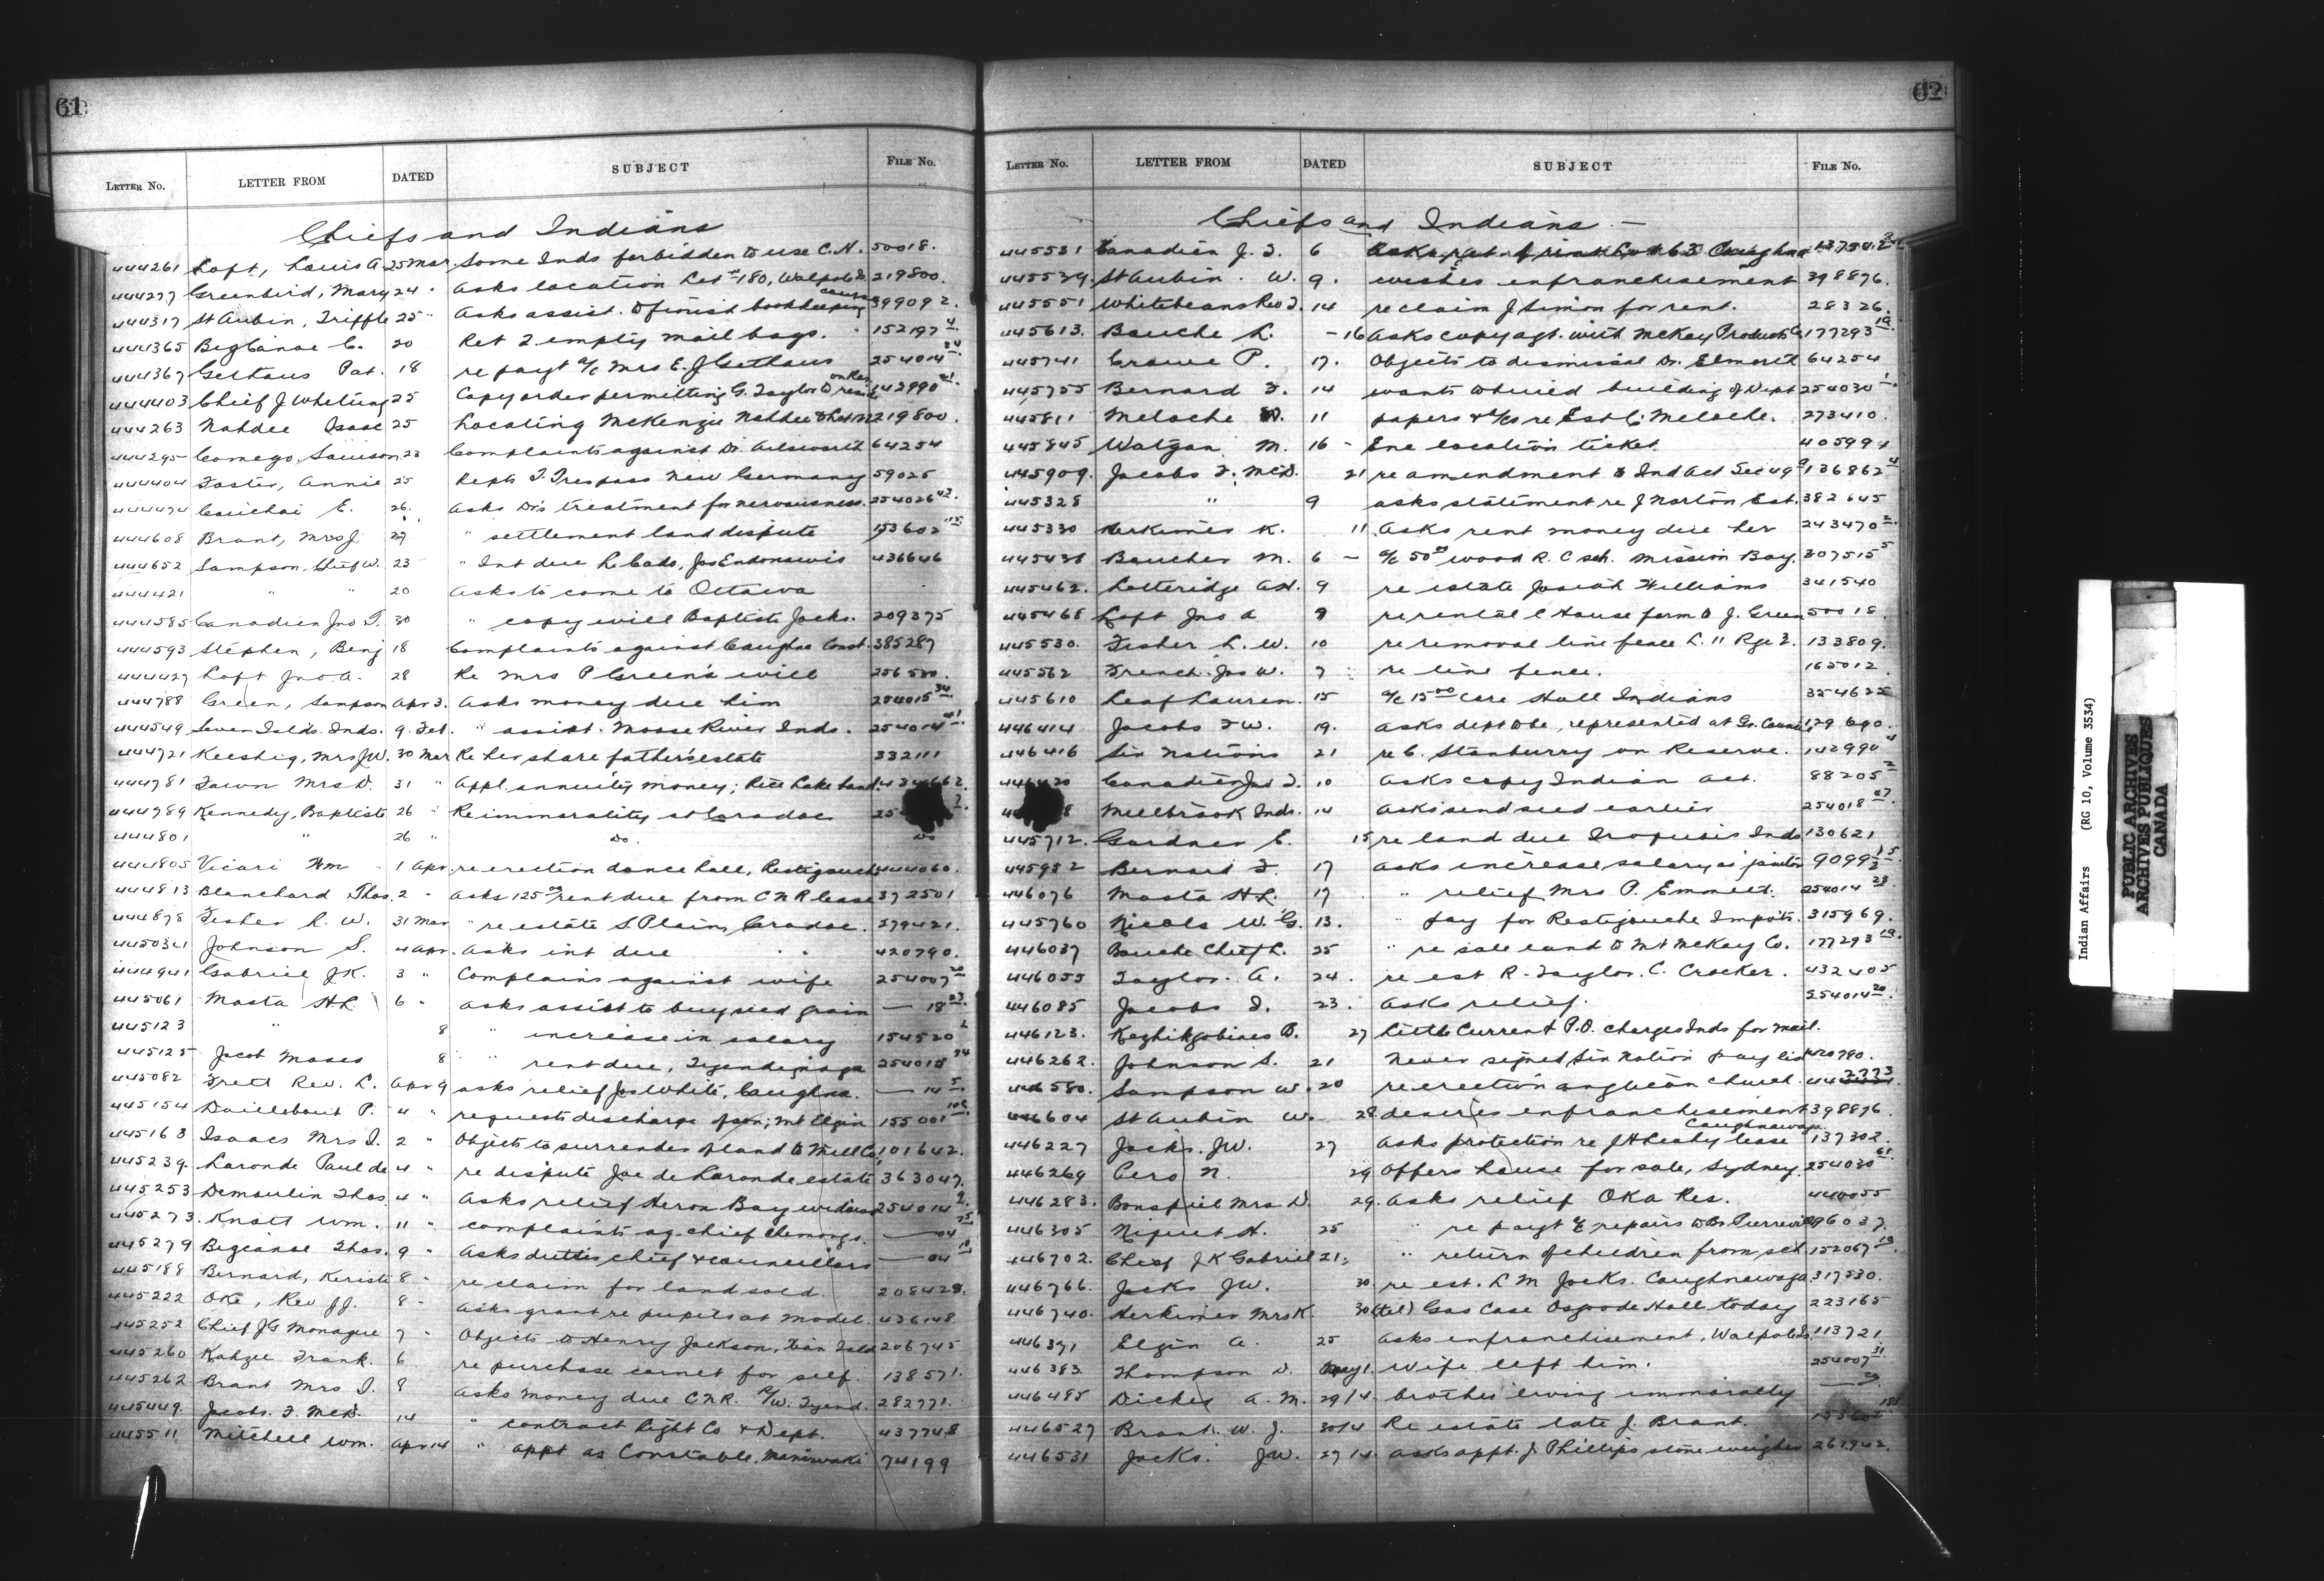 61
LETTER No. LETTER FROM DATED SUBJECT FILE No.
Chiefs and Indians
444261 Loft, Louis A 25 Mar. Some Inds forbidden to use C.H. 50018.
444277 Greenbird, Mary 24 " Asks location Lot 180, Walpole Id 219800.
444317 St Aubin, Triffle 25 " Asks assist. to finish bookkeeping course 399092.
444365 Bigcanoe C. 20 Ret 2 empty mail bags. 152197 4
444367 Gethaus Pat. 18 re payt a/c Mrs E. J Gethaus 254014 24
444403 Chief J Whetung 25 Copy order permitting G. Taylor to reside on Res. 142990 21
444263 Nahdee Isaac 25 Locating McKenzie Nahdee 219800.
444295 Comego, Samson 23 Complaints against Dr. 64254
444404 Foster, Annie 25 Repts T. Trespass New Germany 59025
444474 E. 26. Asks Dr's treatment for nervousness. 254026 42.
444608 Brant, Mrs J 27 " settlement land dispute 153602 115
444652 Sampson, Chief W. 23 " Int due L. Cada, Jos Endonswis 436646
444421 " " 20 Asks to come to Ottawa
444585 Canadien Jno T. 30 " copy will Baptiste Jacks. 209375
444593 Stephen, Benj 18 Complaints against Caughna Const. 385287
444427 Loft Jno A. 28 Re Mrs P Green's will 256580.
444788 Green, Sampson Apr 3. Asks money due him 254015 34
444549 Seven Islds. Inds. 9. Feb. " assist. Moose River Inds. 254014 41
444721 Keeshig, Mrs JW. 30 Mar Re her share father's estate 332111
444781 Fawn Mrs D. 31 " Appl. annuity money; Rice Lake Band.
444789 Kennedy, Baptiste 26 " Re immorality at Caradoc 25
444801 " 26 " Do. Do
444805 Vicari Wm 1 Apr re erection dance hall, Restigouche 444060.
444813 Blanchard Thos. 2 " Asks 125 00 rent due from C N R lease 372501
444878 Fisher L. W. 31 Mar " re estate S. Plain, Caradoc. 279421.
445034 Johnson S. 4 Apr. Asks int due 420790.
444941 Gabriel J.K. 3 " Complains against wife 254007 20
445061 Masta H.L. 6 " Asks assist to buy seed grain — 18 23.
445123 " 8 " increase in salary 154520 2
445125 Jacob Moses 8 " rent due, Tyendinaga 254015 34
445082 Trett Rev. L. Apr 9 asks relief Jos White, Caughna. — 14 5.
445154 Daillebout P. 4 " requests discharge of son; Mt Elgin 155001
445163 Isaacs Mrs I. 2 " Objects to surrender of land to Mill Co. 101642.
445239. Laronde Paul de 4 " re dispute Joe de Laronde estate 363047.
445253 Demoulin Thos. 4 " Asks relief Heron Bay widows 254014 9.
445273. Knott Wm. 11 " complaints ag. chief Chemongs. — 04 25
445279 Bigcanoe Thos. 9 " Asks duties chief & councillors — 04 10
445188 Bernard, Keriste 8 " re claim for land sold. 208428.
445222 Oke, Rev J.J. 8 " Asks grant re pupils at model. 436148.
445252 Chief JG Monague 7 " Objects to Henry Jackson, Xian Isld 206745
445260 Kahgee Frank. 6 re purchase cornet for self. 138571.
445262 Brant Mrs I. 8 Asks money due C N R. R/W. Tyend. 282771.
445449. Jacobs. F. McD. 14 " contract Light Co & Dept. 437748
445511 Mitchell Wm. Apr 14 " appt as Constable, Maniwaki 74199
62
LETTER No. LETTER FROM DATED SUBJECT FILE No.
Chiefs and Indians —
445531 Canadien J. T. 6
445539 St Aubin W. 9. wishes enfranchisement 398876.
445551 Whitebeans Rev J. 14 re claim J Simon for rent. 28326.
445613. Bouche L. – 16 Asks copy agt. with McKay Products Co. 177293 19
445741 Crowe P. 17. Objects to dismissal Dr. 64254
445755 Bernard F. 14 wants building of Dept 254030 1.
445811 Meloche W. 11 papers & a/cs re Est C. Meloche. 273410.
445845 Watgan. M. 16 – Enc location ticket. 405994
445909. Jacobs F. McD. 21 re amendment to Ind Act Sec 49 a 136862 4
445328 " 9 asks statement re J Norton Est. 382645
445330 Herkimer K. 11. Asks rent money due her 243470 2.
445438 Boucher M. 6 – a/c 50 00 wood R. C sch. Mission Bay. 307515 5
445462. Lotteridge A.H. 9 re estate Josiah Williams 341540
445468 Loft Jno A 9 re rental C House farm to J. Green 50018
445530. Fisher L. W. 10 re removal line fence L. 11 Rge 2. 133809.
445562 French. Jos W. 7 re line fence. 165012
445610 Leaf Lauren. 15 a/c 15 00 care Hall Indians 354625
446414 Jacobs F W. 19. Asks dept to be represented at Gr. Council 129690.
446416 Six Nations 21 re C. Stanburry on Reserve. 142990 4
446420 Canadien Jno T. 10 Asks copy Indian Act. 88205 2
Millbrook Inds. 14 Asks send seed earlier 254018 27.
445712. Gardner E. 15 re land due Iroquois Inds 130621
445952 Bernard F. 17 Asks increase salary as janitor 9099
446076 Masta H L. 17 " relief Mrs P. Emmett. 254014 23.
445760 Nicols W. G. 13. " pay for Restigouche Impots. 315969.
446037 Bouche Chief L. 25 " re sale land to Mt McKay Co. 177293 19.
446055 Taylor. A. 24. re est R. Taylor. C. Crocker. 432405
446085 Jacobs I. 23. Asks relief. 254014 20.
446123. Kezhikgobines B. 27 Little Current P.O. charges Inds for mail.
446262. Johnson S. 21 Never signed Six Nation pay list 420790.
446580. Sampson W. 20 re erection anglican church. 44
446604 St Aubin W. 28 desires enfranchisement 398876.
446227 Jacks. JW. 27 Asks protection re J H Leahy lease Caughnawaga 137302.
446269 Cero N. 29 Offers house for sale, Sydney. 254030 61
446283. Bonspiel Mrs D. 29. Asks relief OKA Res. 440055
446305 Niquet H. 25 " re payt a/c repairs to Br. Pierreville 96037.
446702. Chief J K Gabriel 21. " return of children from sch. 152067 13.
446766. Jacks JW. 30. re est. L M Jacks. Caughnawaga. 317530.
446740. Herkimer Mrs K. 30 (tel) Gas Case Osgoode Hall today 223165
446371 Elgin A. 25 Asks enfranchisement, Walpole Is. 113721.
446383. Thompson D. May 1. Wife left him. 254007 31.
446485 Dickey A. M. 29/4. brother living immorally —
446527 Brant. W. J. 30/4 Re estate late J. Brant.
446531 Jacks. JW. 27/4. asks appt. J. Phillips stone weigher 261942.
Indian Affairs (RG 10, Volume 3534)
PUBLIC ARCHIVES
ARCHIVES PUBLIQUES
CANADA